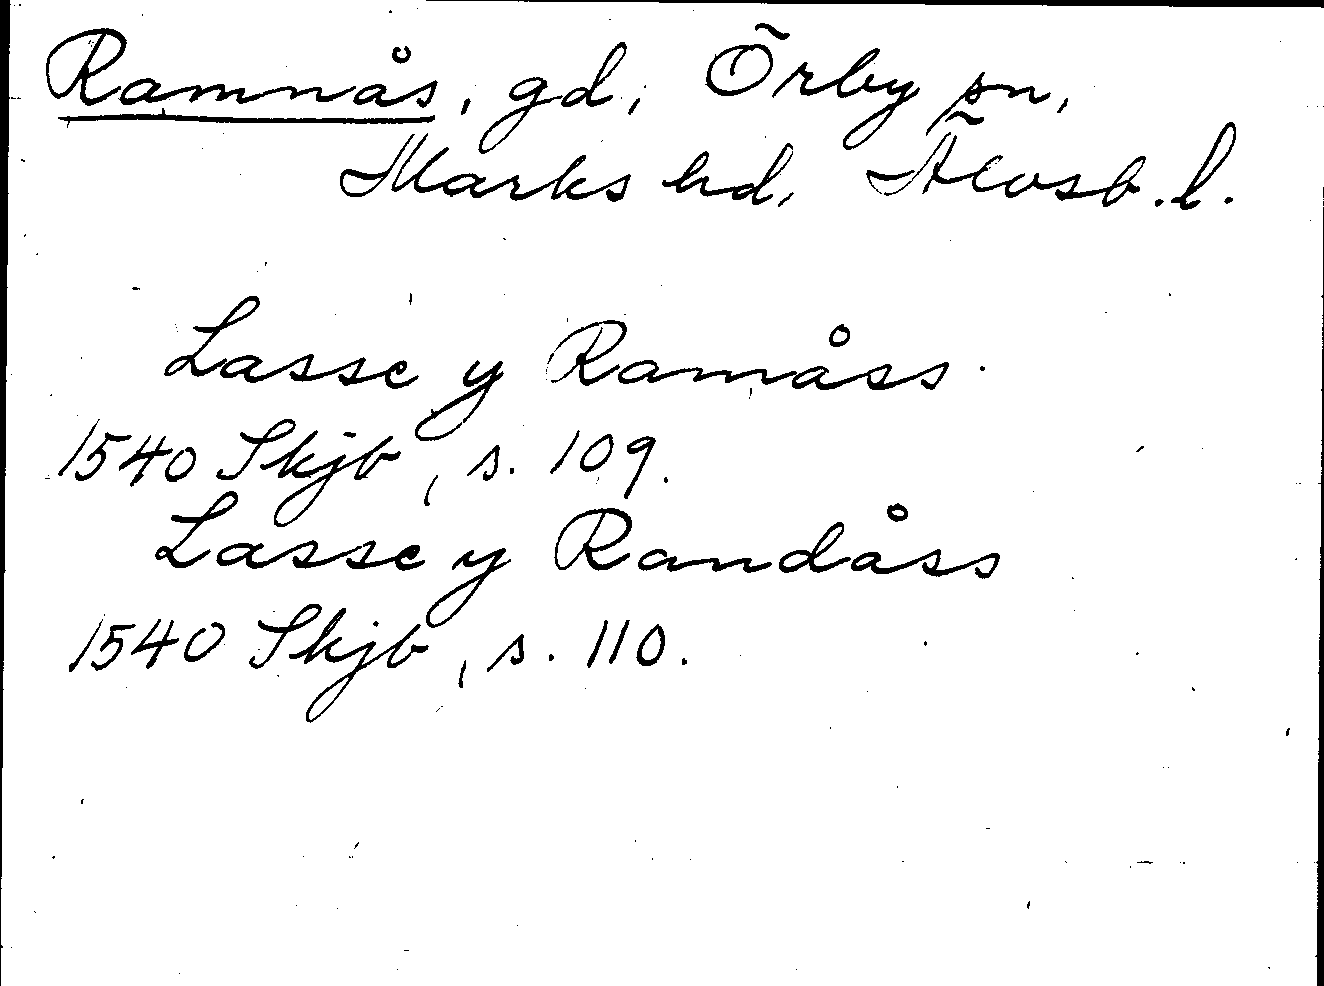 Ramnås, gd, Örby sn,
Marks hd, Älvsb. l.
Lasse y Ramåss
1540 Skjb, s. 109.
Lasse y Randåss
1540 Skjb, s. 110.